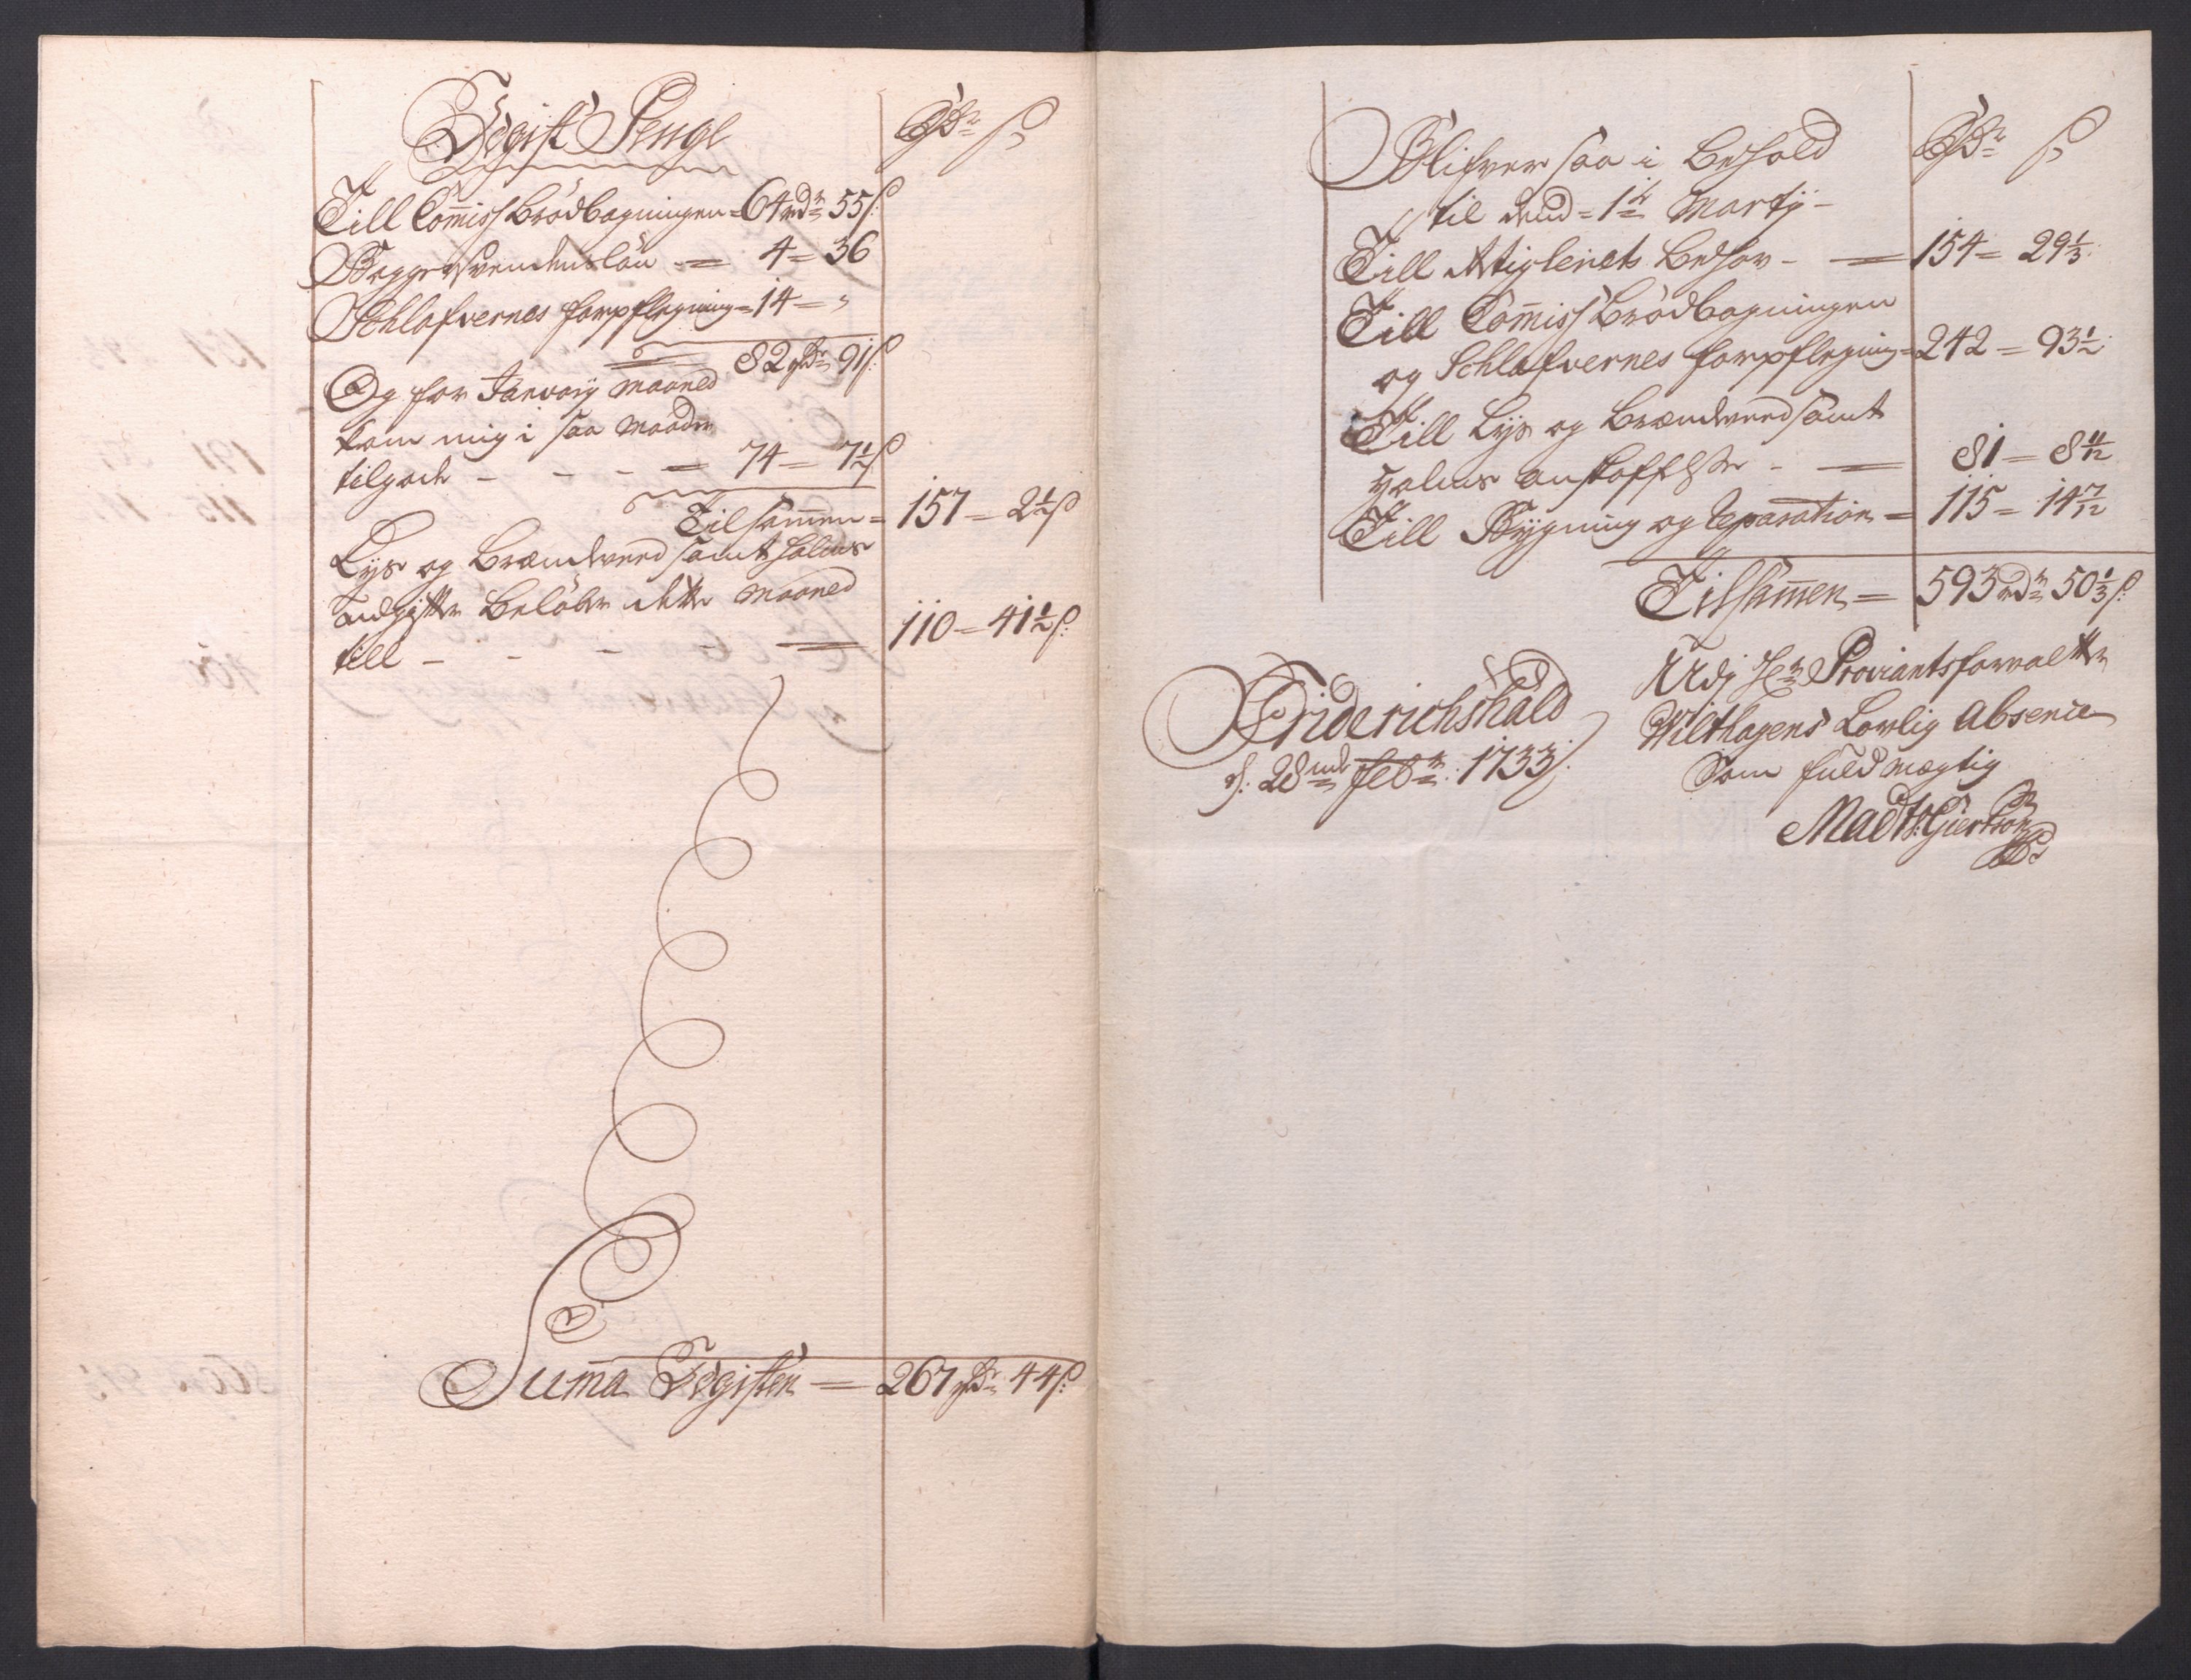 Udgift Penge Rdr ß
Till Com̄iss brødbagningen = 64 rdr 55 ß:
Baggersvendens løn = 4 = 36
Schlafvernes forpflegning = 14 = "
82 rdr 91 ß:
Og for Janvarij maaned
kom mig i saa maader
tilgode - - - = 74 = 7½ ß
Tilsam̄en = 157 = 2½ ß
Lys og brændeveed samt halms
udgifter beløber dette maaned
till - - - - = 110 = 41½ ß:
Sum̄a Udgiften = 267 rdr 44 ß:
Blifver saa i behold Rdr ß
til dend = 1te Martij -
Till Artigleriets behov - = 154 = 29⅓:
Till Com̄iss brødbagningen
og Schlafvernes forpflegning = 242 = 93½:
Till Lys og brændeveed samt
halms anskaffelse - = 81 = 8 11/12
Till Bygning og Reparation = 115 = 14 7/12
Tilsam̄en = 593 rdr 50⅓ ß:
Friderichshald
d: 28nde febr: 1733:
Udj Hr Proviantsforvalter
Wilthagens Lovlig Absence
Som fuldmægtig
Madts: Giertson